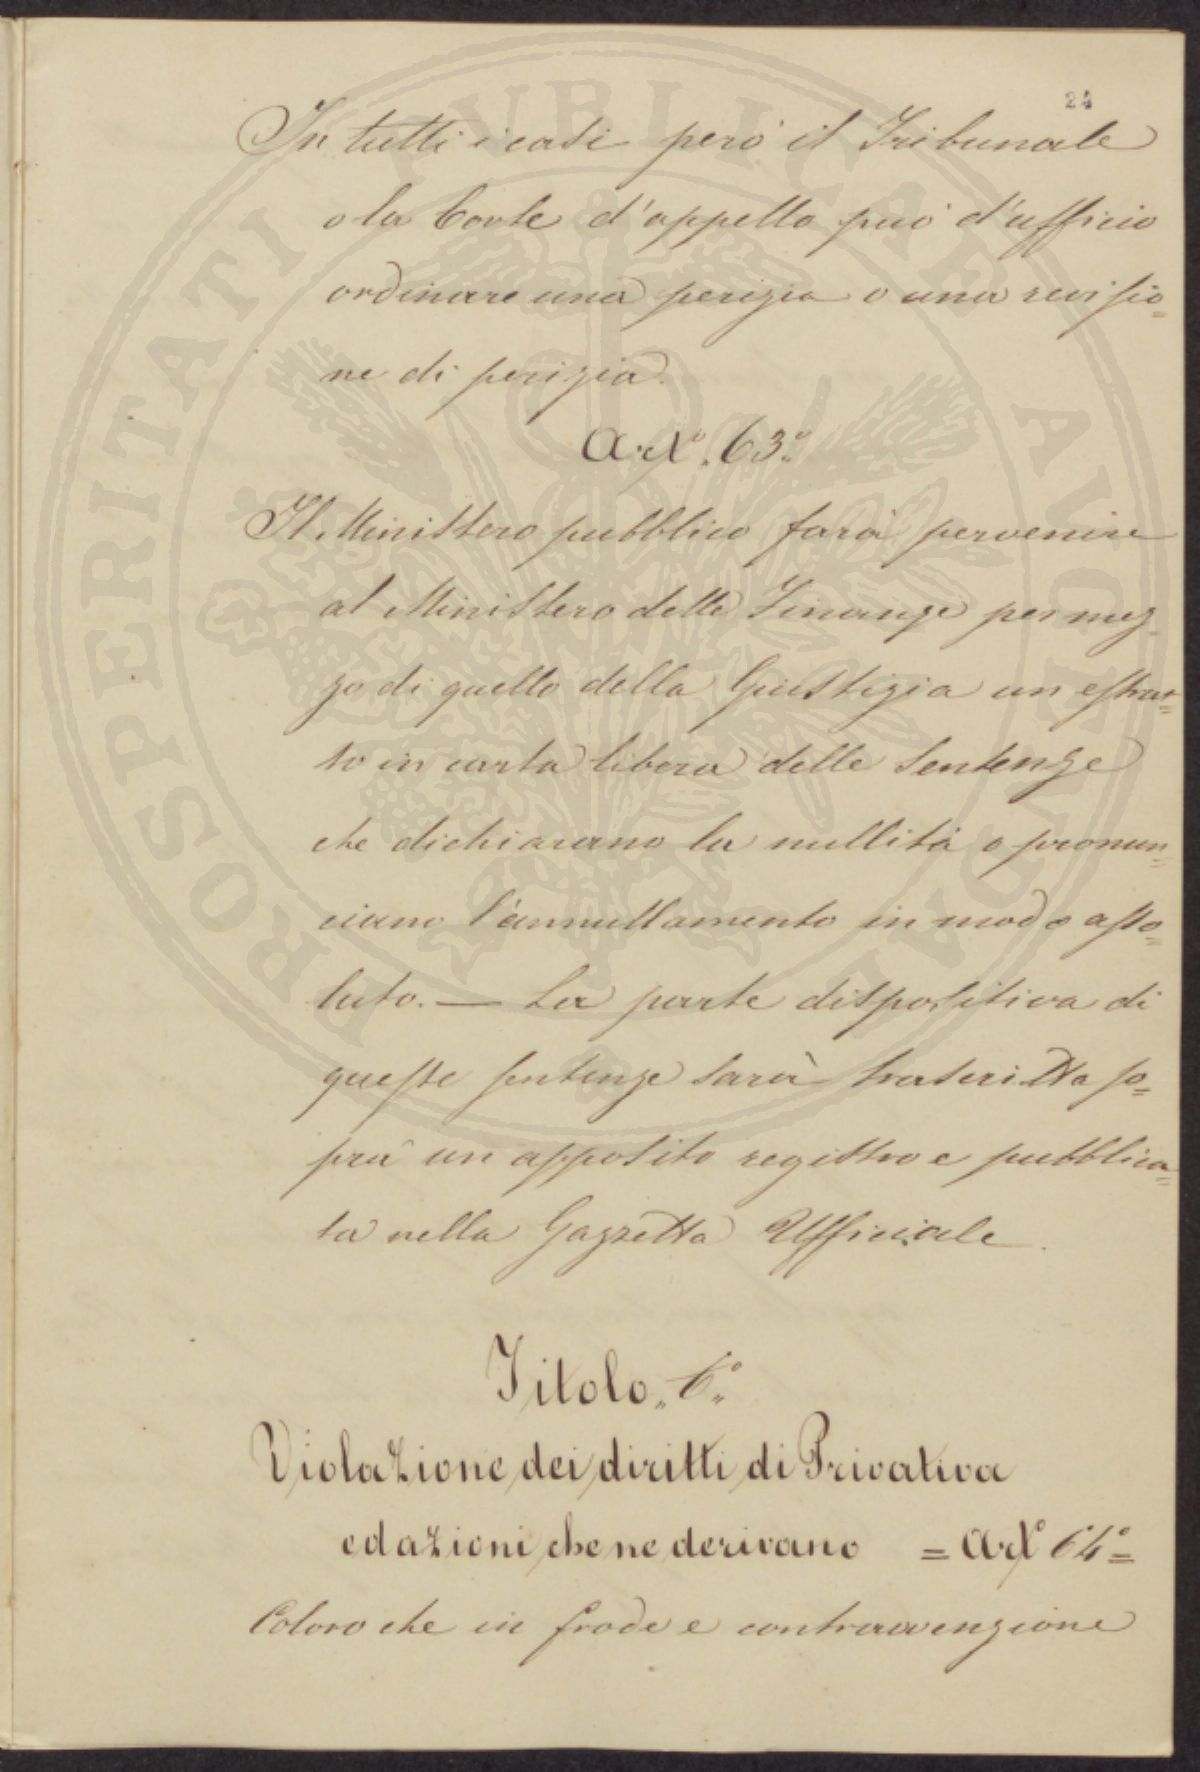 24
In tutti i casi però il Tribunale
o la Corte d'appello può d'ufficio
ordinare una perizia o una revisio=
ne di perizia.
Art.º 63º
Il Ministero pubblico farà pervenire
al Ministero delle Finanze per mez=
zo di quello della Giustizia un estrat=
to in carta libera delle Sentenze
che dichiarano la nullità o pronun=
ciano l'annullamento in modo asso=
luto. — La parte dispositiva di
queste sentenze sarà trascritta so=
pra un apposito registro e pubblica=
ta nella Gazzetta Ufficiale.
Titolo „6º„
Violazione dei diritti di Privativa
ed azioni che ne derivano = Artº 64º=
Coloro che in frode e contravvenzione
PROSPERITATI PVBLICAE AVGENDAE